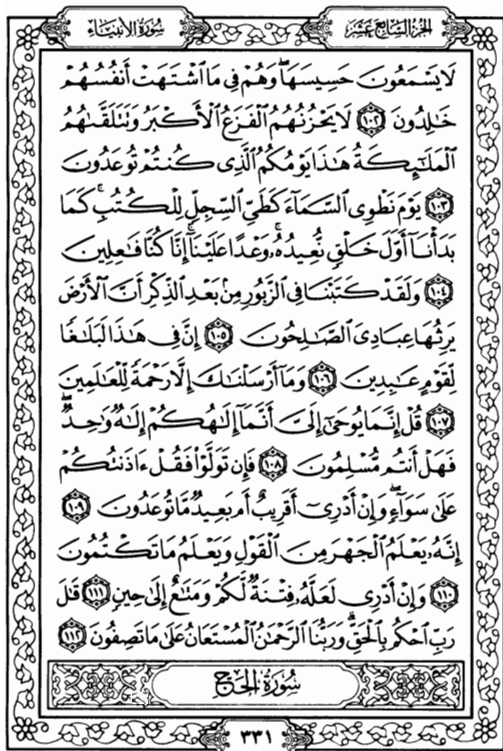 الجزء السابع عشر
سورة الأنبياء
لَا يَسْمَعُونَ حَسِيسَهَا ۖ وَهُمْ فِي مَا اشْتَهَتْ أَنفُسُهُمْ
خَالِدُونَ ١٠٢ لَا يَحْزُنُهُمُ الْفَزَعُ الْأَكْبَرُ وَتَتَلَقَّاهُمُ
الْمَلَائِكَةُ هَٰذَا يَوْمُكُمُ الَّذِي كُنتُمْ تُوعَدُونَ
١٠٣ يَوْمَ نَطْوِي السَّمَاءَ كَطَيِّ السِّجِلِّ لِلْكُتُبِ ۚ كَمَا
بَدَأْنَا أَوَّلَ خَلْقٍ نُّعِيدُهُ ۚ وَعْدًا عَلَيْنَا ۚ إِنَّا كُنَّا فَاعِلِينَ
١٠٤ وَلَقَدْ كَتَبْنَا فِي الزَّبُورِ مِن بَعْدِ الذِّكْرِ أَنَّ الْأَرْضَ
يَرِثُهَا عِبَادِيَ الصَّالِحُونَ ١٠٥ إِنَّ فِي هَٰذَا لَبَلَاغًا
لِّقَوْمٍ عَابِدِينَ ١٠٦ وَمَا أَرْسَلْنَاكَ إِلَّا رَحْمَةً لِّلْعَالَمِينَ
١٠٧ قُلْ إِنَّمَا يُوحَىٰ إِلَيَّ أَنَّمَا إِلَٰهُكُمْ إِلَٰهٌ وَاحِدٌ ۖ
فَهَلْ أَنتُم مُّسْلِمُونَ ١٠٨ فَإِن تَوَلَّوْا فَقُلْ آذَنتُكُمْ
عَلَىٰ سَوَاءٍ ۖ وَإِنْ أَدْرِي أَقَرِيبٌ أَم بَعِيدٌ مَّا تُوعَدُونَ ١٠٩
إِنَّهُ يَعْلَمُ الْجَهْرَ مِنَ الْقَوْلِ وَيَعْلَمُ مَا تَكْتُمُونَ
١١٠ وَإِنْ أَدْرِي لَعَلَّهُ فِتْنَةٌ لَّكُمْ وَمَتَاعٌ إِلَىٰ حِينٍ ١١١ قَالَ
رَبِّ احْكُم بِالْحَقِّ ۗ وَرَبُّنَا الرَّحْمَٰنُ الْمُسْتَعَانُ عَلَىٰ مَا تَصِفُونَ ١١٢
سُورَةُ الْحَجِّ
٣٣١